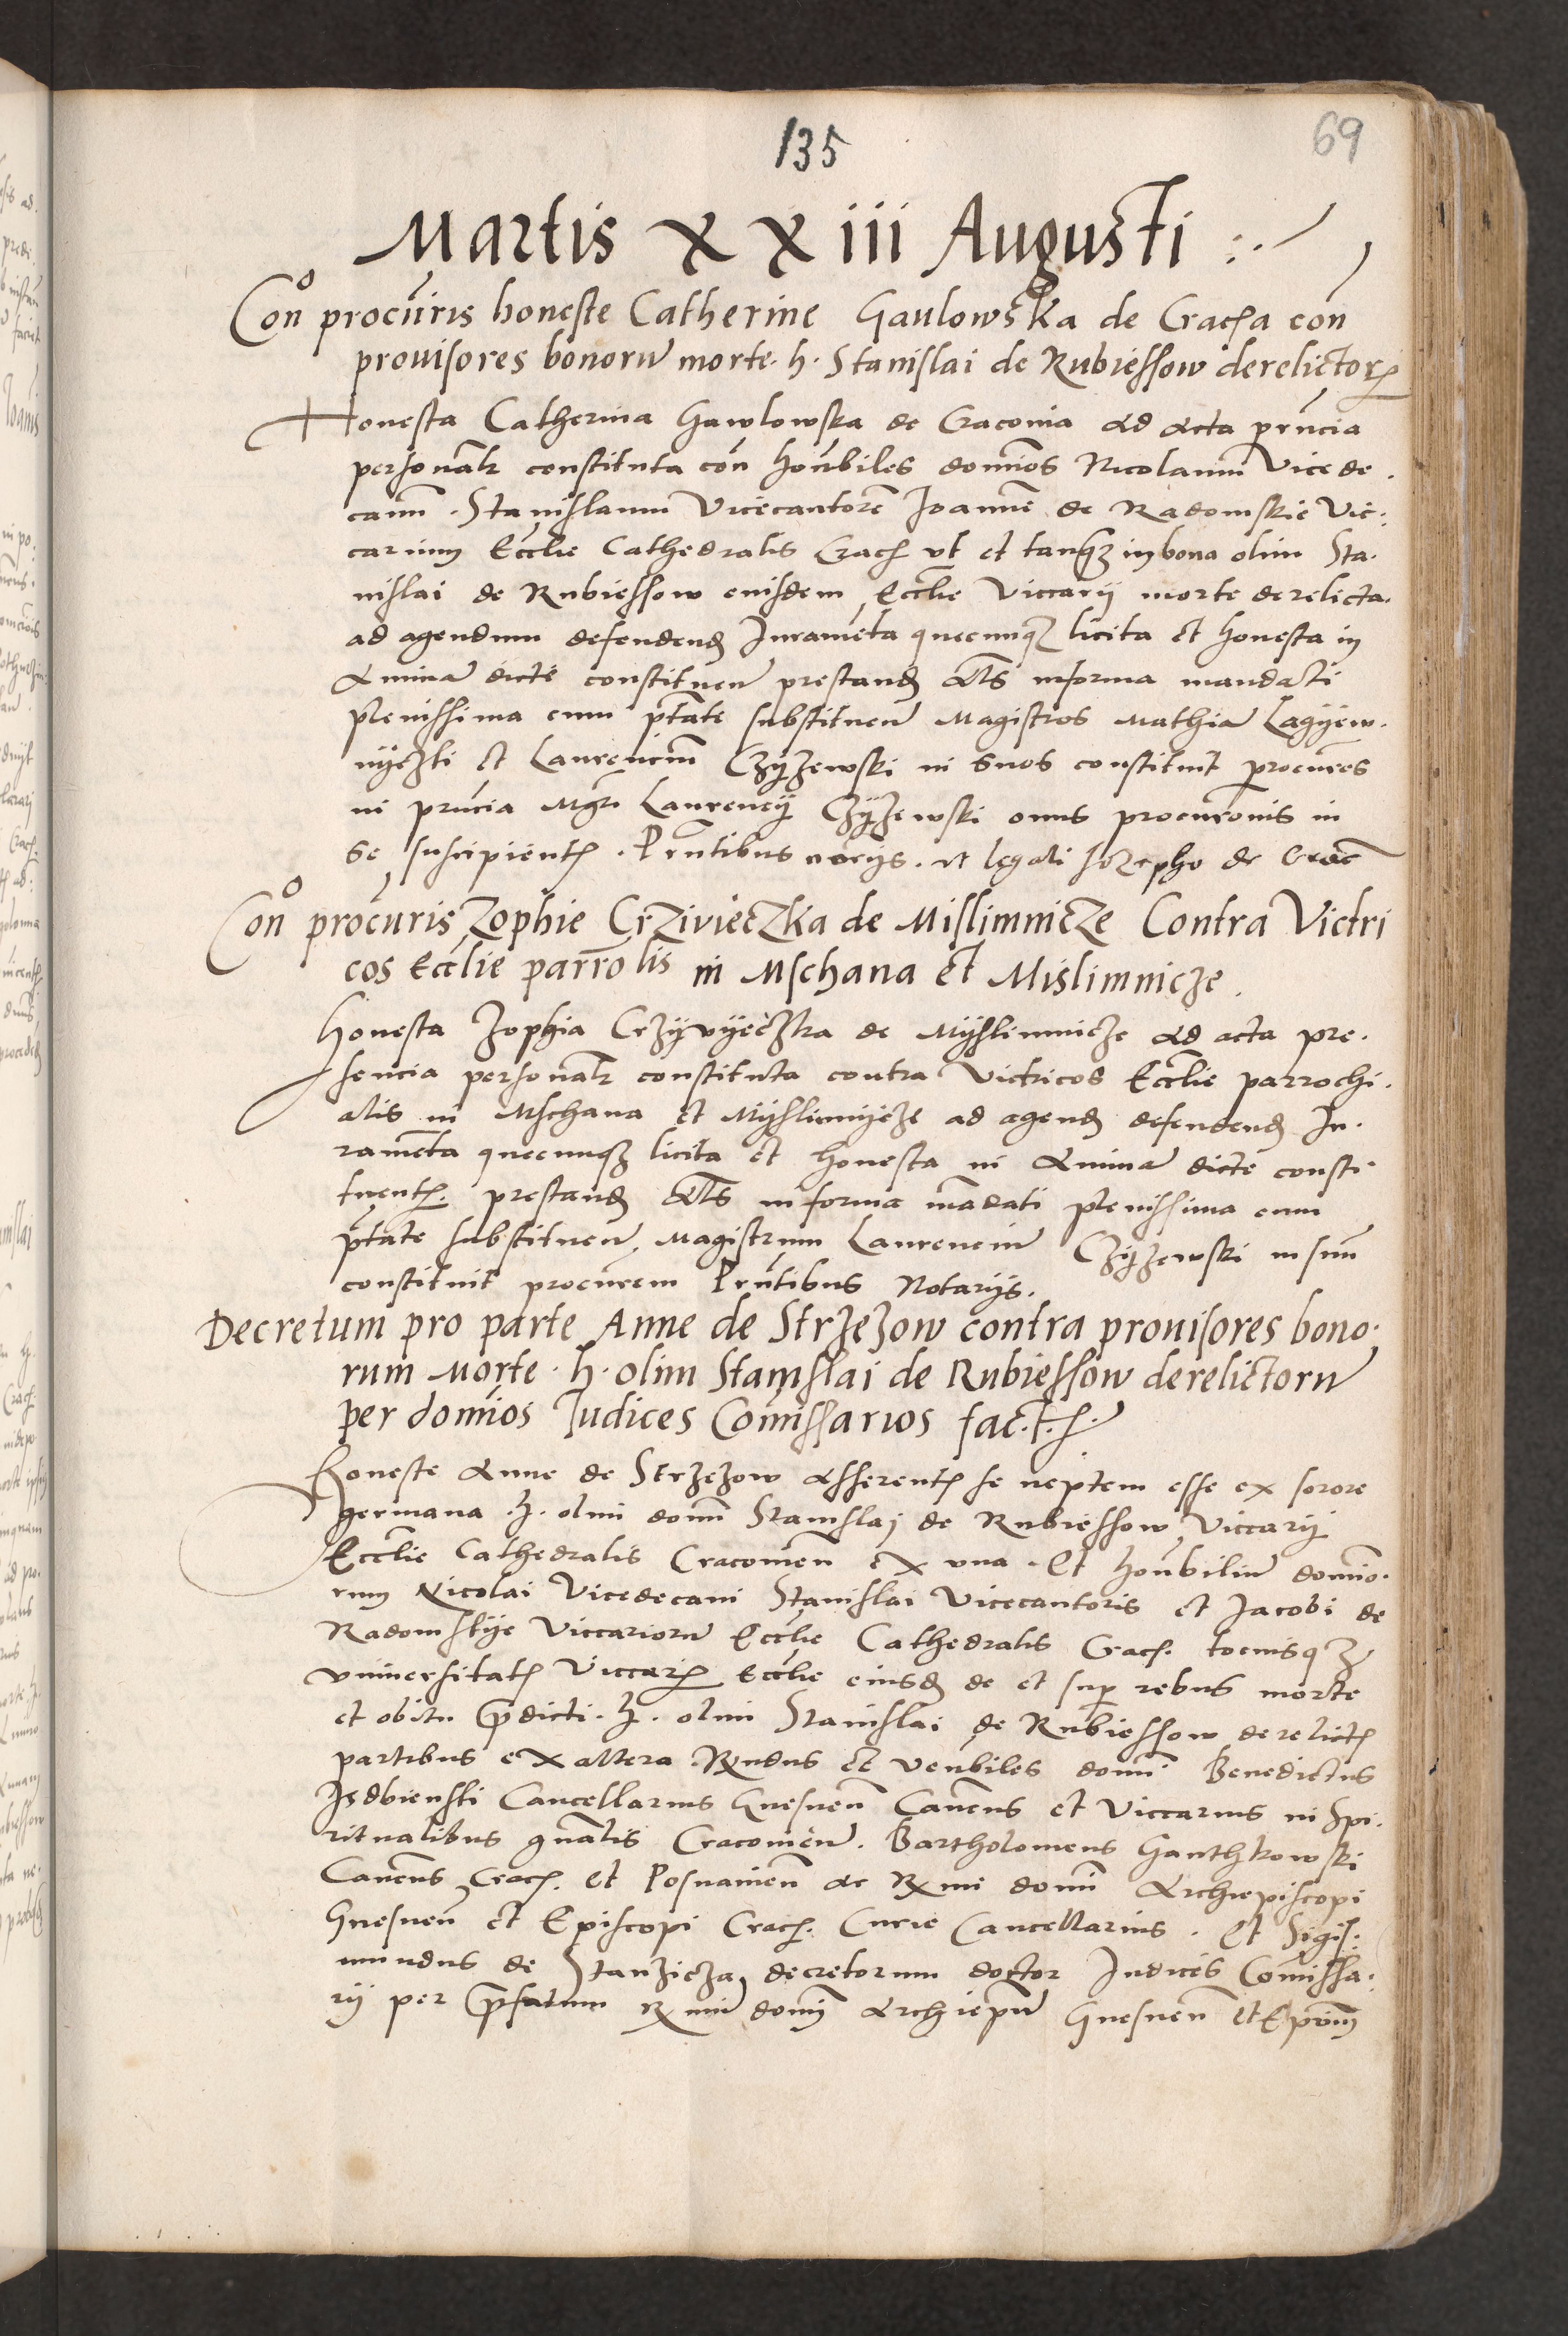 135
69
Martis XXiii Augusti
Cono procuris honeste Catherine Gaulowska de Crac(h)a con
prouisores bonoru morte h. Stanislai de Rubiessow derelictor
Honesta Catherina Gawlowska de Craconia ad acta prncia
personalr constituta con honbiles dominos Nicolaum Vicede
canu. Stanislaum Vicecantore Joanne de Radomskie Vic:
carium Ecclie Cathedralis Crac ut et tanqz in bona olim Sta.
nislai de Rubiessow eiusdem Ecclie Viccarij morte derelicta.
ad agendum defendend Juramenta quecunqz licita et honesta in
Animã dicte constituen prestand Als in forma mandati
plenissima cum ptate substituen Magistros Mathia Lagyew.
nyczki et Laurenciu Czyzewski in suos constituit procures
in prncia Mgri Laurencij Czyzewski onus procuronis in
se suscipient. Prntibus notijs. et legali Jozepho de Croc
Cono procuris Zophie Crzivieczka de Mislimnicze Contra Victri
cos Ecclie parrolis in Mschana et Mislimnicze.
Honesta Zophia Crzyvyeczka de Myslimnicze ad acta pre.
sencia personalr constituta contra Victricos Ecclie parrochi.
alis in Mschana et Myslimnycze ad agend defendend Ju.
ramenta quecunqz licita et honesta in Animã dicte consti
tuent. prestand Als in forma madati plenissima cum
ptate substituen. Magistrum Laurenciu Czyzewski in suu
constituit procurem Prntibus Notarijs.
Decretum pro parte Anne de Strzezow contra prouisores bono.
rum Morte. h. olim Stanislai de Rubiessow derelictoru
per domios Judices Comissarios fac.t.
Honeste Anne de Strzezow Asserent se neptem esse ex sorore
germana .h. olim domi Stanislaj de Rubiessow Viccarij
Ecclie Cathedralis Cracouien ex una. Et honbiliu domio.
rum Nicolai Vicedecani Stanislai Vicecantoris et Jacobi de
Radomskye Viccarioru Ecclie Cathedralis Crac. tociusqz
vniuersitatis Viccarior Ecclie eiusd de et sup rebus morte
et obitu predicti .h. olim Stanislai de Rubiessow derelictis
partibus ex altera Rndus et venbiles domi Benedictus
Isdbienski Cancellarius Gnesnen Canens et Viccarius in Spi.
ritualibus gnalis Cracouien. Bartholomeus Ganthkowski
Canens Crac. et Posnanien ac Rmi domi Archiepiscopi
Gnesnen et Episcopi Crac. Curie Cancellarius. Et Sigis:
mundus de Stanzicza decretorum doctor Judices Comissa.
rij per prefatum Rmu domi Archiepum Gnesnen et Epum